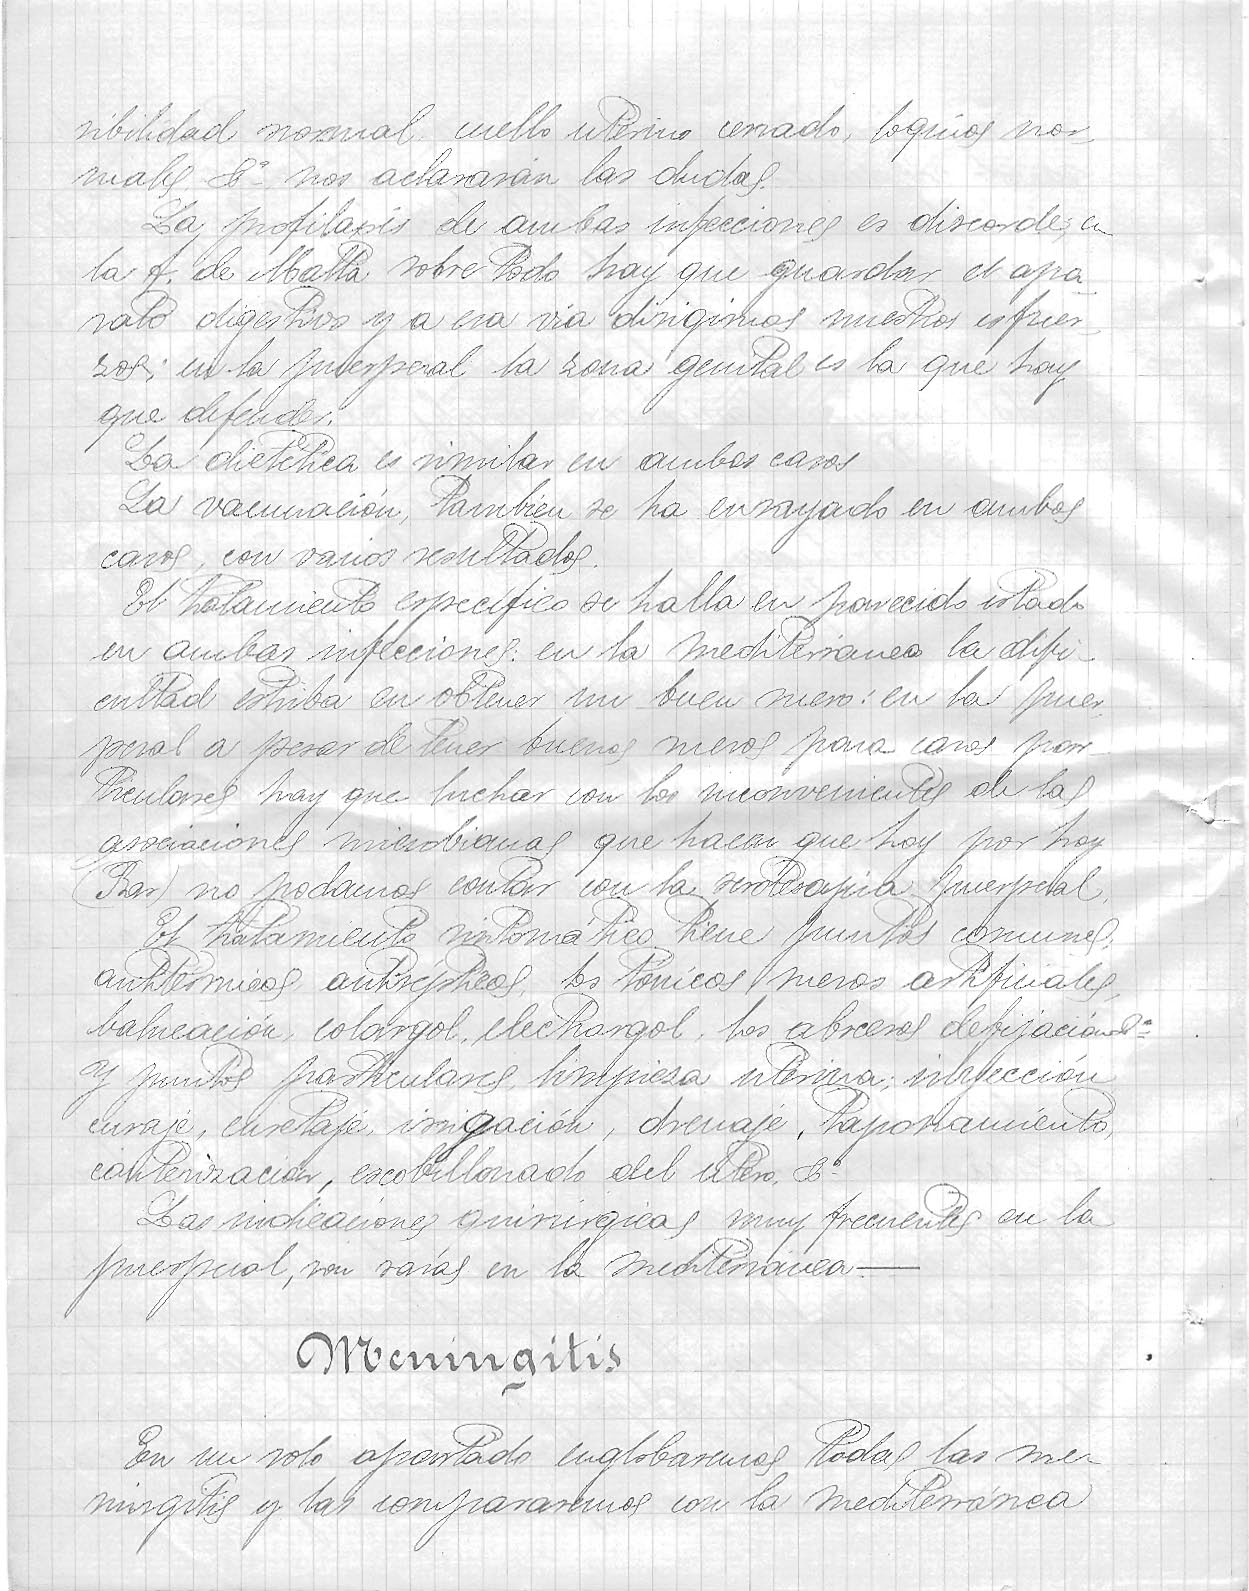 sibilidad normal, cuello uterino cerrado, loquios nor-
males &ª nos aclararán las dudas.
La profilaxis de ambas infecciones es discorde; en
la f. de Malta sobre todo hay que guardar el apa-
rato digestivo y a esa via dirigimos nuestros esfuer-
zos; en la puerperal la zona genital es la que hay
que defender.
La dietética es similar en ambos casos
La vacunación, tambien se ha ensayado en ambos
casos, con varios resultados.
El tratamiento específico se halla en parecido estado
en ambas infecciones: en la mediterranea la difi-
cultad estriba en obtener un buen suero: en la puer
peral a pesar de tener buenos sueros para casos par-
ticulares hay que luchar con los inconvenientes de las
asociaciones microbianas que hacen que hoy por hoy
(Bar) no podamos contar con la seroterapia puerperal.
El tratamiento sintomático tiene puntos comunes,
antitérmicos antisépticos, los tónicos, sueros artificiales,
balneación, colargol, electrargol, los abscesos de fijación &ª
y puntos particulares, limpieza uterina; inyección
curaje, curetaje, irrigación, drenaje, taponamiento,
cauterización, escobillonado del útero, &ª
Las indicaciones quirúrgicas muy frecuentes en la
puerperal, son raras en la mediterránea—
Meningitis
En un solo apartado englobaremos todas las me-
ningitis y las compararemos con la mediterranea